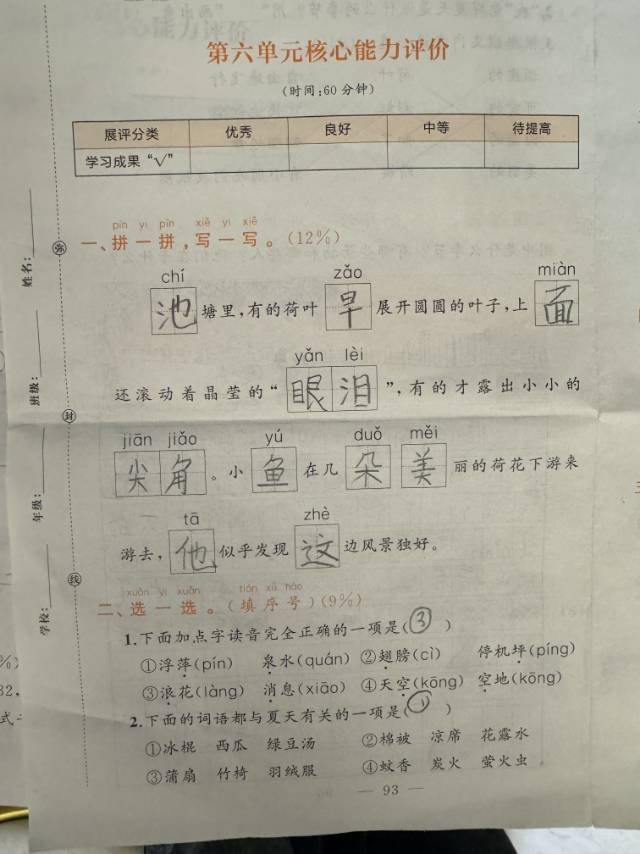 第六单元核心能力评价
(时间:60分钟)
展评分类 优秀 良好 中等 待提高
学习成果“√”
pīn yi pīn xiě yi xiě
一、拼一拼,写一写。(12%)
chí zǎo miàn
池塘里,有的荷叶早展开圆圆的叶子,上面
yǎn lèi
还滚动着晶莹的“眼泪”,有的才露出小小的
jiān jiǎo yú duǒ měi
尖角。小鱼在几朵美丽的荷花下游来
tā zhè
游去,他似乎发现这边风景独好。
xuǎn yi xuǎn tián xù hào
二、选一选。(填序号)(9%)
1.下面加点字读音完全正确的一项是(③)
①浮萍(pín) 泉水(quán) ②翅膀(cì) 停机坪(píng)
③浪花(làng) 消息(xiāo) ④天空(kōng) 空地(kōng)
2.下面的词语都与夏天有关的一项是(①)
①冰棍 西瓜 绿豆汤 ②棉被 凉席 花露水
③蒲扇 竹椅 羽绒服 ④蚊香 炭火 萤火虫
— 93 —
姓名:
班级:
年级:
学校:
弥
封
线